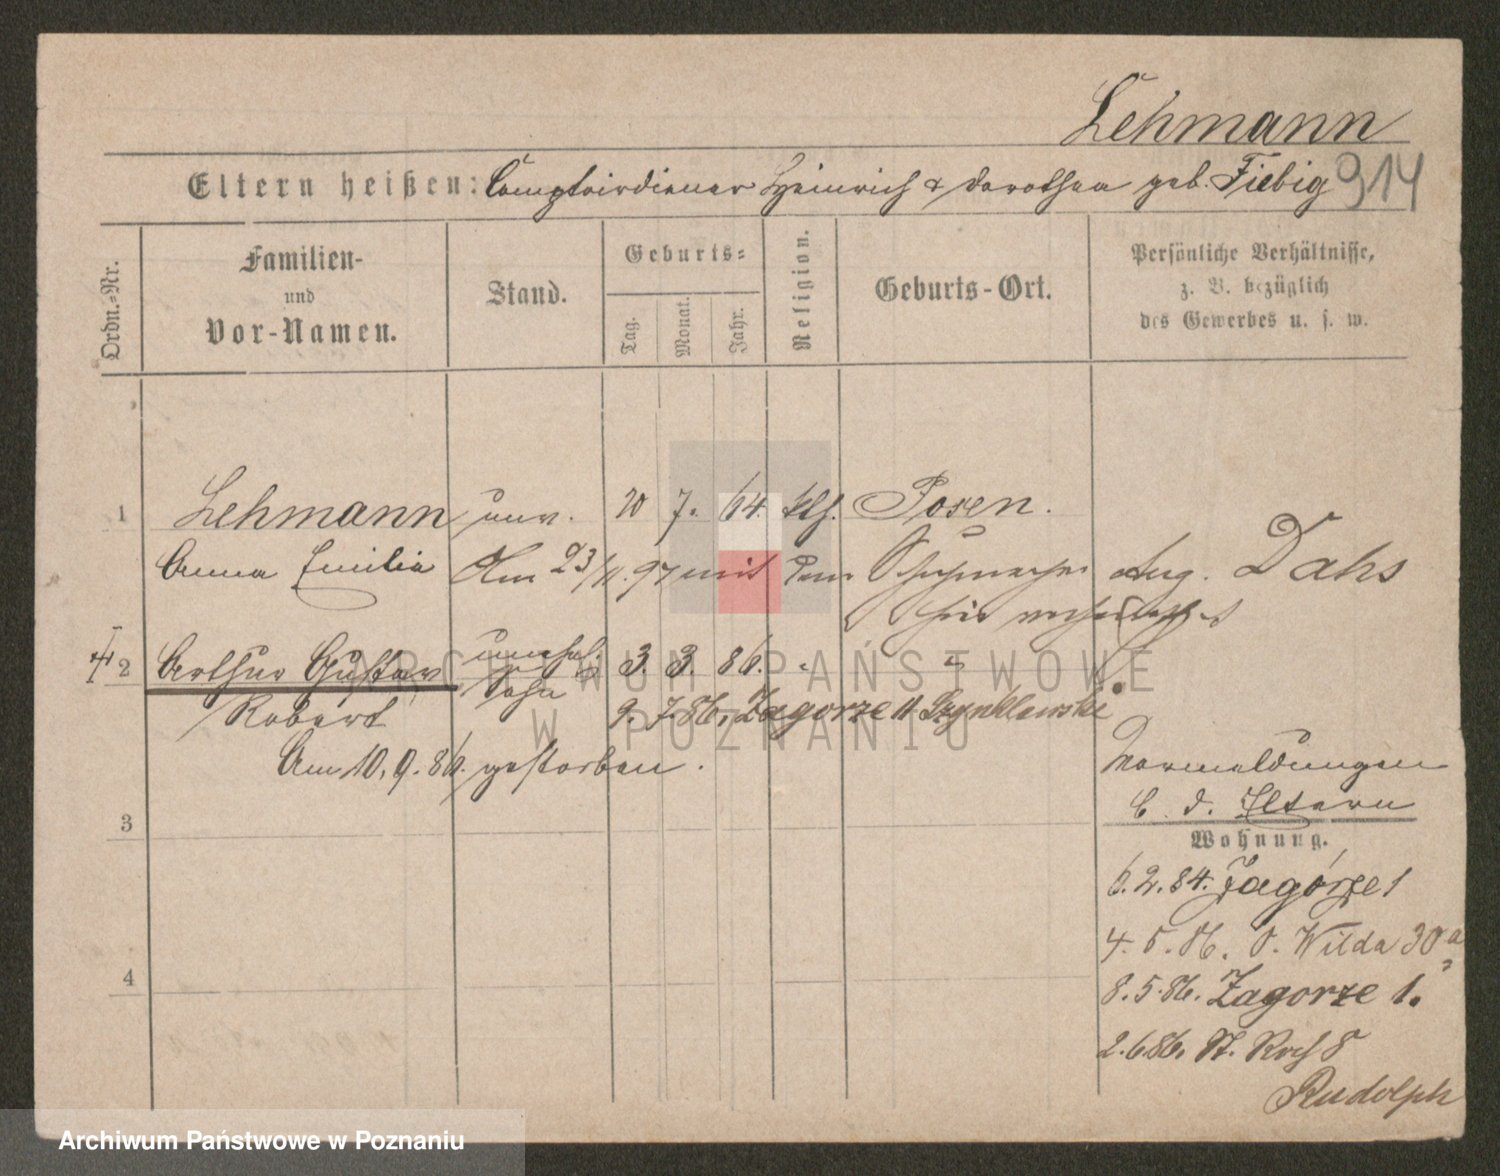 Lehmann
Eltern heißen: Comptoirdiener Heinrich & Dorothea geb. Fiebig 914
Ordn.=Nr.
Familien-
und
Vor-Namen.
Stand.
Geburts=
Tag.
Monat.
Jahr.
Religion.
Geburts-Ort.
Persönliche Verhältnisse,
z. B. bezüglich
des Gewerbes u. s. w.
1 Lehmann unv. 20 7. 64. Posen.
Anna Emilie Am 23/11. 97 mit dem Schuhmacher Aug. Dahs
hier verheirathet
2 Arthur Gustav unehel. 3. 3. 86. "
Robert Sohn 9. 7. 86. Zagorze 11 Szynklewski
Am 10. 9. 86. gestorben.
Vermeldungen
b. d. Eltern
3
Wohnung.
6. 2. 84. Zagórze 1
4. 5. 86. O. Wilda 30a
4
8. 5. 86. Zagorze 1.
2. 6 86. St. Roch 8
Rudolph
ARCHIWUM PAŃSTWOWE
W POZNANIU
Archiwum Państwowe w Poznaniu